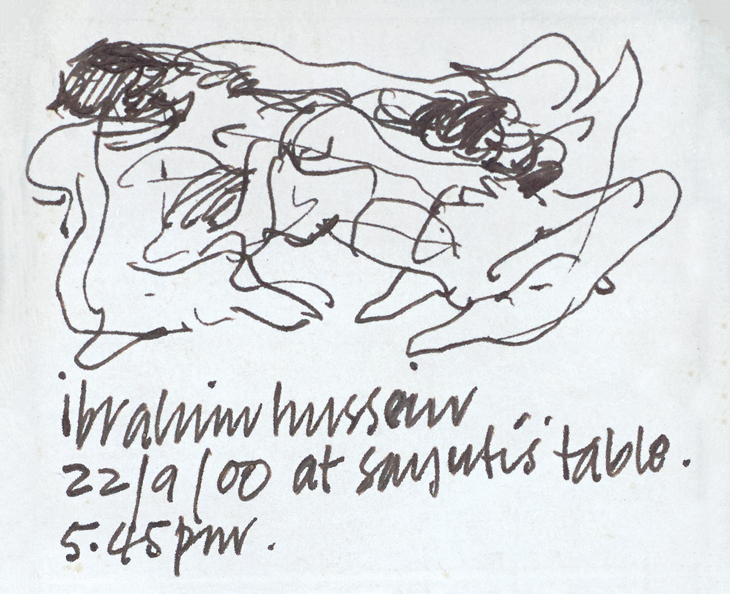 ibrahim hussein
22/9/00 at sayutis table.
5.45pm.